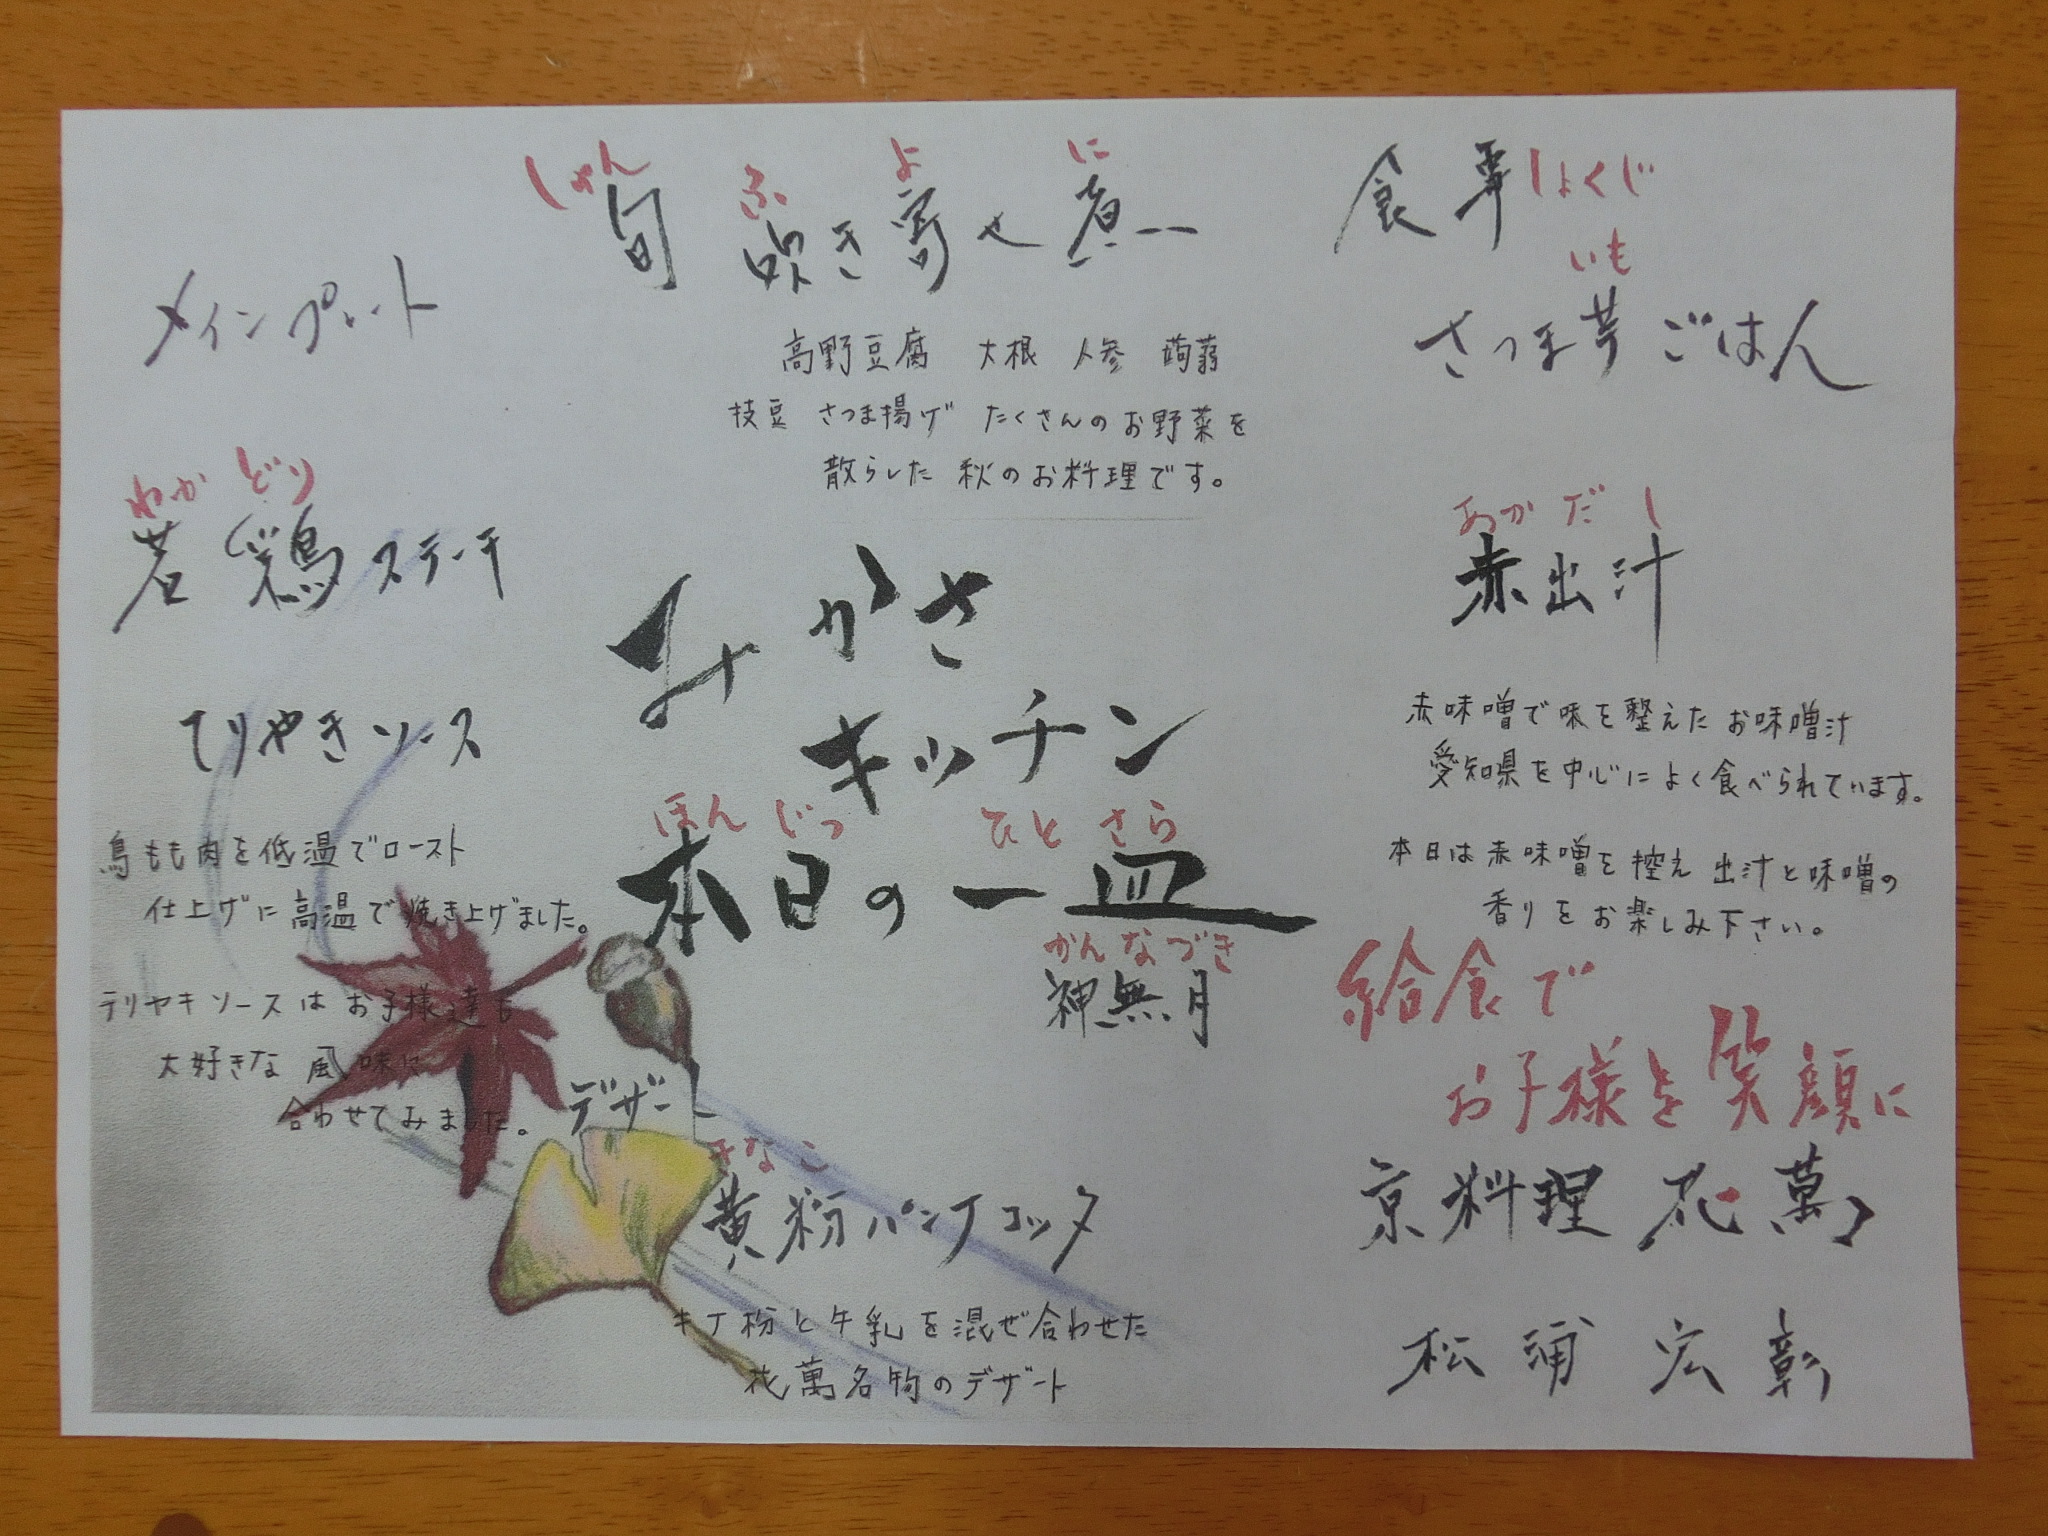 メインプレート
わかどり
若鶏ステーキ
てりやきソース
鳥もも肉を低温でロースト
仕上げに高温で焼き上げました。
テリヤキソースはお子様達も
大好きな風味に
合わせてみました。
しゅん ふ よ に
旬 吹き寄せ煮
高野豆腐 大根 人参 蒟蒻
枝豆 さつま揚げ たくさんのお野菜を
散らした 秋のお料理です。
みかさ
キッチン
ほんじつ ひとさら
本日の一皿
かんなづき
神無月
デザート
きなこ
黄粉パンナコッタ
キナ粉と牛乳を混ぜ合わせた
花萬名物のデザート
食事 しょくじ
いも
さつま芋ごはん
あかだし
赤出汁
赤味噌で味を整えたお味噌汁
愛知県を中心によく食べられています。
本日は赤味噌を控え 出汁と味噌の
香りをお楽しみ下さい。
給食で
お子様を笑顔に
京料理 花萬
松浦宏彰